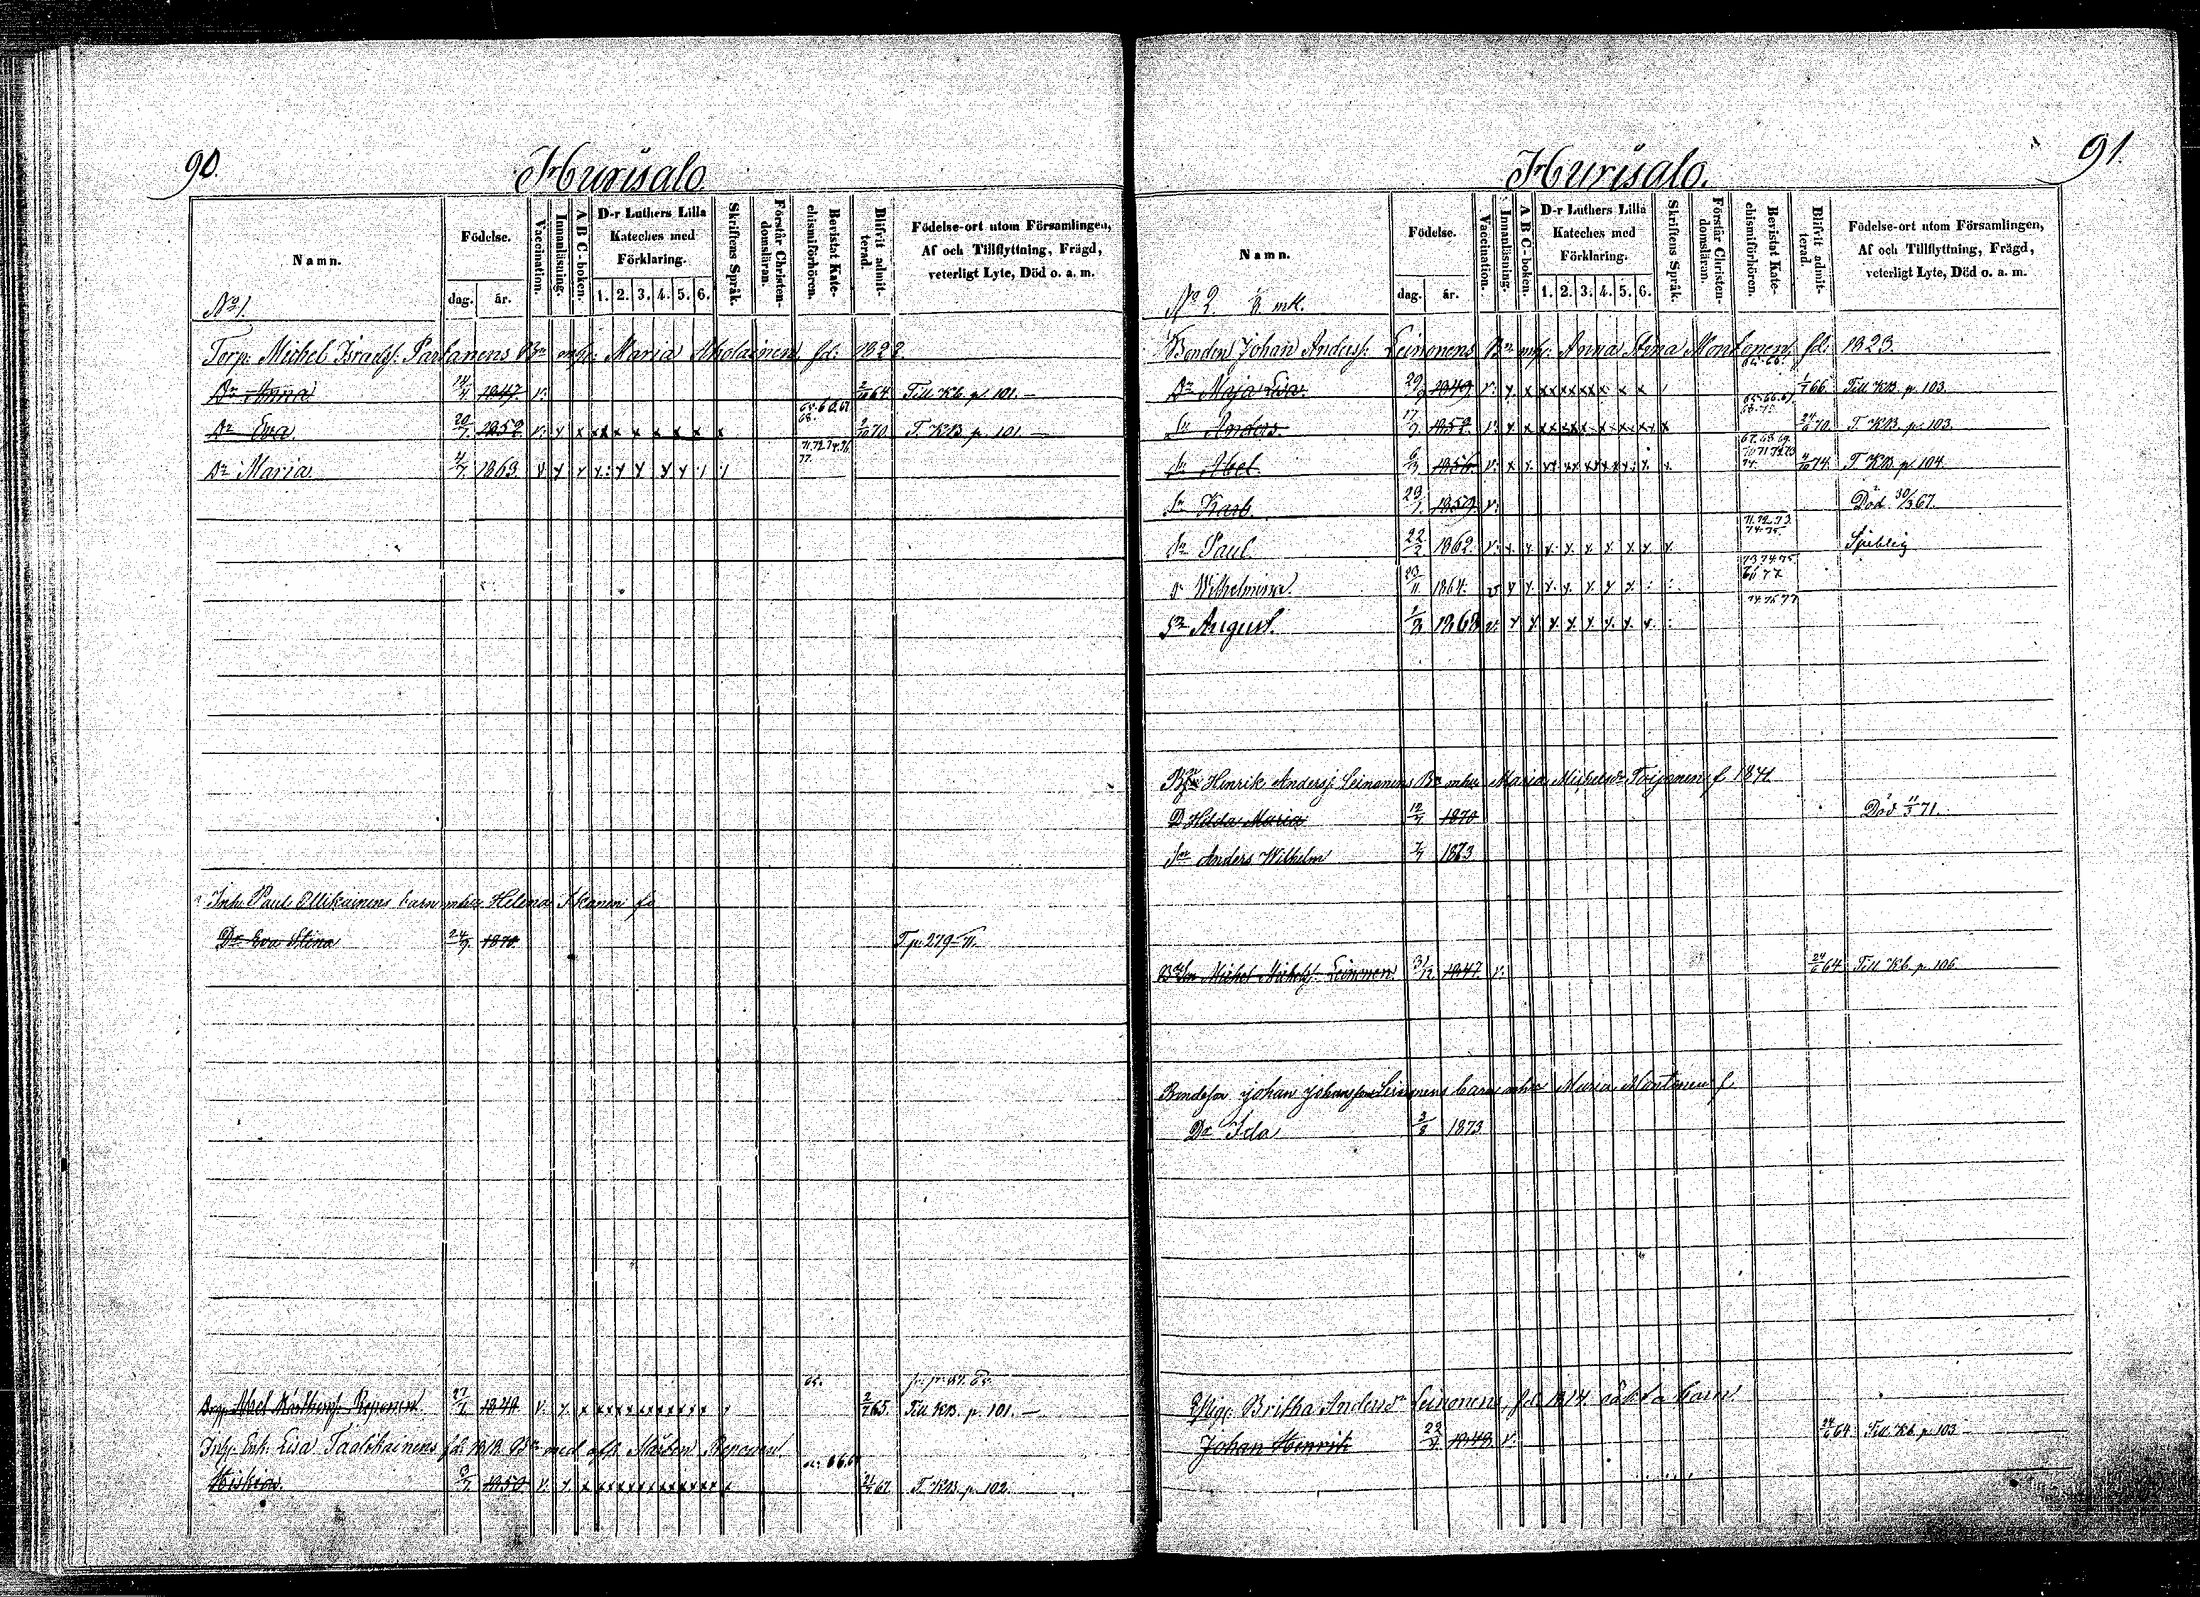 90.
Hurisalo
Namn.
Födelse.
dag. år.
Vaccination.
Innanläsning.
A B C-boken.
D-r Luthers Lilla Kateches med Förklaring.
1. 2. 3. 4. 5. 6.
Skriftens Språk.
Förstår Christendomsläran.
Bevistat Katechismiförhören.
Blifvit admitterad.
Födelse-ort utom Församlingen, Af och Tillflyttning, Frägd, veterligt Lyte, Död o. a. m.
No 1.
Torp: Michel Israelss: Partanens Bn mhu: Maria fd: 1822
Dr Anna 1847 v: 64 Till Kb. p. 101.
Dr Eva 20/7. 1852 v: x x x x x x x x x 70. T. KB. p. 101.
71.72.74.76. 77.
Dr Maria 4/7 1863
Inh: Paul Ollikainens barn mhu Helena Ikonen fo
Dr Eva Stina 24/9. 1870. T p. 279
65.
Abel Reponen 27/2 1848 v: x x x x x x x x 2/7 65. Till KB. p. 101.
Inh: Enk: Lisa Taalikainens fd: 1818. Bn med afl. Mårten Reponen
Hiskias. 1850 v: x x x x x x x x x 67. T. KB. p. 102.
91.
Hurisalo.
Namn.
Födelse.
dag. år.
Vaccination.
Innanläsning.
A B C-boken.
D-r Luthers Lilla Kateches med Förklaring.
1. 2. 3. 4. 5. 6.
Skriftens Språk.
Förstår Christendomsläran.
Bevistat Katechismiförhören.
Blifvit admitterad.
Födelse-ort utom Församlingen, Af och Tillflyttning, Frägd, veterligt Lyte, Död o. a. m.
No 2 mtl.
Bonden Johan Anderss: Leinonens Bn mhu: Anna Stina Montonen fd: 1823.
Dr Maja Lisa 29/9 1849 v: x x x x x x x x 66. Till KB. p. 103.
Sn Anders. 17/9 1852. v: x x x x x x x x x 24/6 70. T KB. p. 103.
Sn Abel. 6/3 1856. v: x x x x x x x x x 74. T KB. p. 104.
Sn Karl. 29/1. 1859. v: Död 30/3 67.
71.72.73. 74.75.
Sn Paul 22/2 1862. v:
73.74.75. 77
Dr Wilhelmina 23/11 1864.
Sn August. 1/8 1868 v:
Henrik Anderss: Leinonens Bn mhu Maria Michelsdr Toijonen f 1841
D Hilda Maria 12/7 1870 Död 11/3 71.
Sn Anders Wilhelm 7/7 1873
Michel Michelss: Leinonen 31/12. 1847. v: 24/6 64 Till Kb. p. 106.
Bondeson Johan Johansson Leinonens barn mhu Maria Montonen f.
Dr Ida 3/8 1873
Britha Andersdr Leinonens, fd. 1814. oäkta barn
Johan Henrik 22/4 1848 v: 24/6 64 Till Kb. p. 103